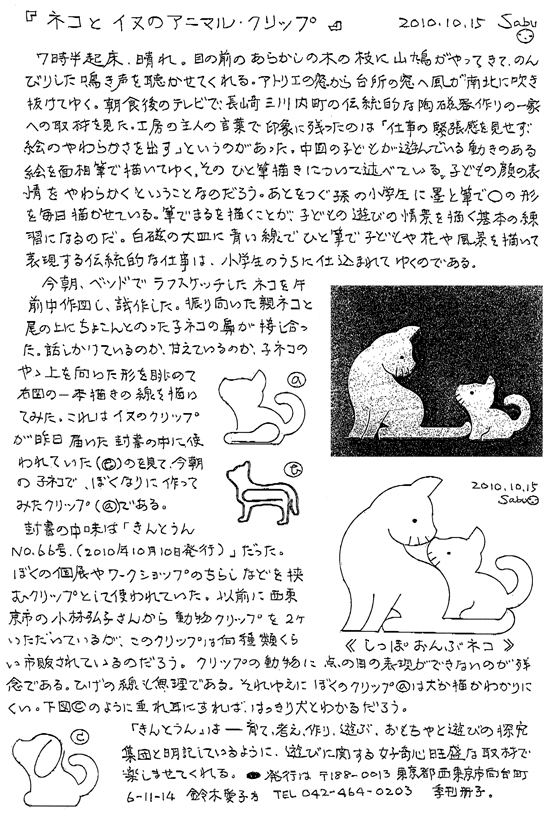 『ネコと イヌのアニマル・クリップ』 2010.10.15 Sabu
7時半起床、晴れ。目の前のあらかしの木の枝に山鳩がやってきて、のん
びりした鳴き声を聴かせてくれる。アトリエの窓から台所の窓へ風が南北に吹き
抜けてゆく。朝食後のテレビで、長崎三川内町の伝統的な陶磁器作りの一家
への取材を見た。工房の主人の言葉で印象に残ったのは「仕事の緊張感を見せず
絵のやわらかさを出す」というのがあった。中国の子どもが遊んでいる動きのある
絵を面相筆で描いてゆく。その ひと筆描きについて述べている。子どもの顔の表
情を やわらかくということなのだろう。あとをつぐ孫の小学生に 墨と筆で○の形
を毎日描かせている。筆でまるを描くことが、子どもの 遊びの情景を描く基本の練
習になるのだ。白磁の大皿に青い線で ひと筆で子どもや 花や 風景を描いて
表現する伝統的な仕事は、小学生のうちに仕込まれて ゆくのである。
今朝、ベッドで ラフスケッチした ネコを午
前中作図し、試作した。振り向いた親ネコと
尾の上にちょこんとのった子ネコの鼻が接し合っ
た。話しかけているのか、甘えているのか、子ネコの
やゝ上を向いた形を眺めて
右図の一本描きの線を描い
てみた。これは イヌのクリップ
が昨日届いた封書の中に使
われていた(ⓑ)のを見て、今朝
の子ネコで、ぼくなりに作って
みたクリップ(ⓐ)である。
ⓐ
ⓑ
2010.10.15
Sabu
封書の中味は「きんとうん
NO.66号.(2010年10月10日発行)」だった。
ぼくの個展やワークショップのちらしなどを挟
むクリップとして使われていた。以前に西東
京市の小林弘子さんから 動物クリップを 2ケ
いただいているが、このクリップは何種類くら
《 しっぽおんぶネコ 》
い市販されているのだろう。クリップの動物に 点の目の表現ができないのが残
念である。ひげの線も無理である。それゆえに ぼくのクリップⓐは犬か猫かわかりに
くい。下図ⓒのように垂れ耳にすれば、はっきり犬とわかるだろう。
ⓒ
「きんとうん」は ― 育て、考え、作り、遊ぶ、おもちゃと遊びの探究
集団と明記しているように、遊びに関する好奇心旺盛な取材で
楽しませてくれる。 ● 発行は 〒188-0013 東京都西東京市向台町
6-11-14 鈴木愛子方 TEL 042-464-0203 季刊冊子。